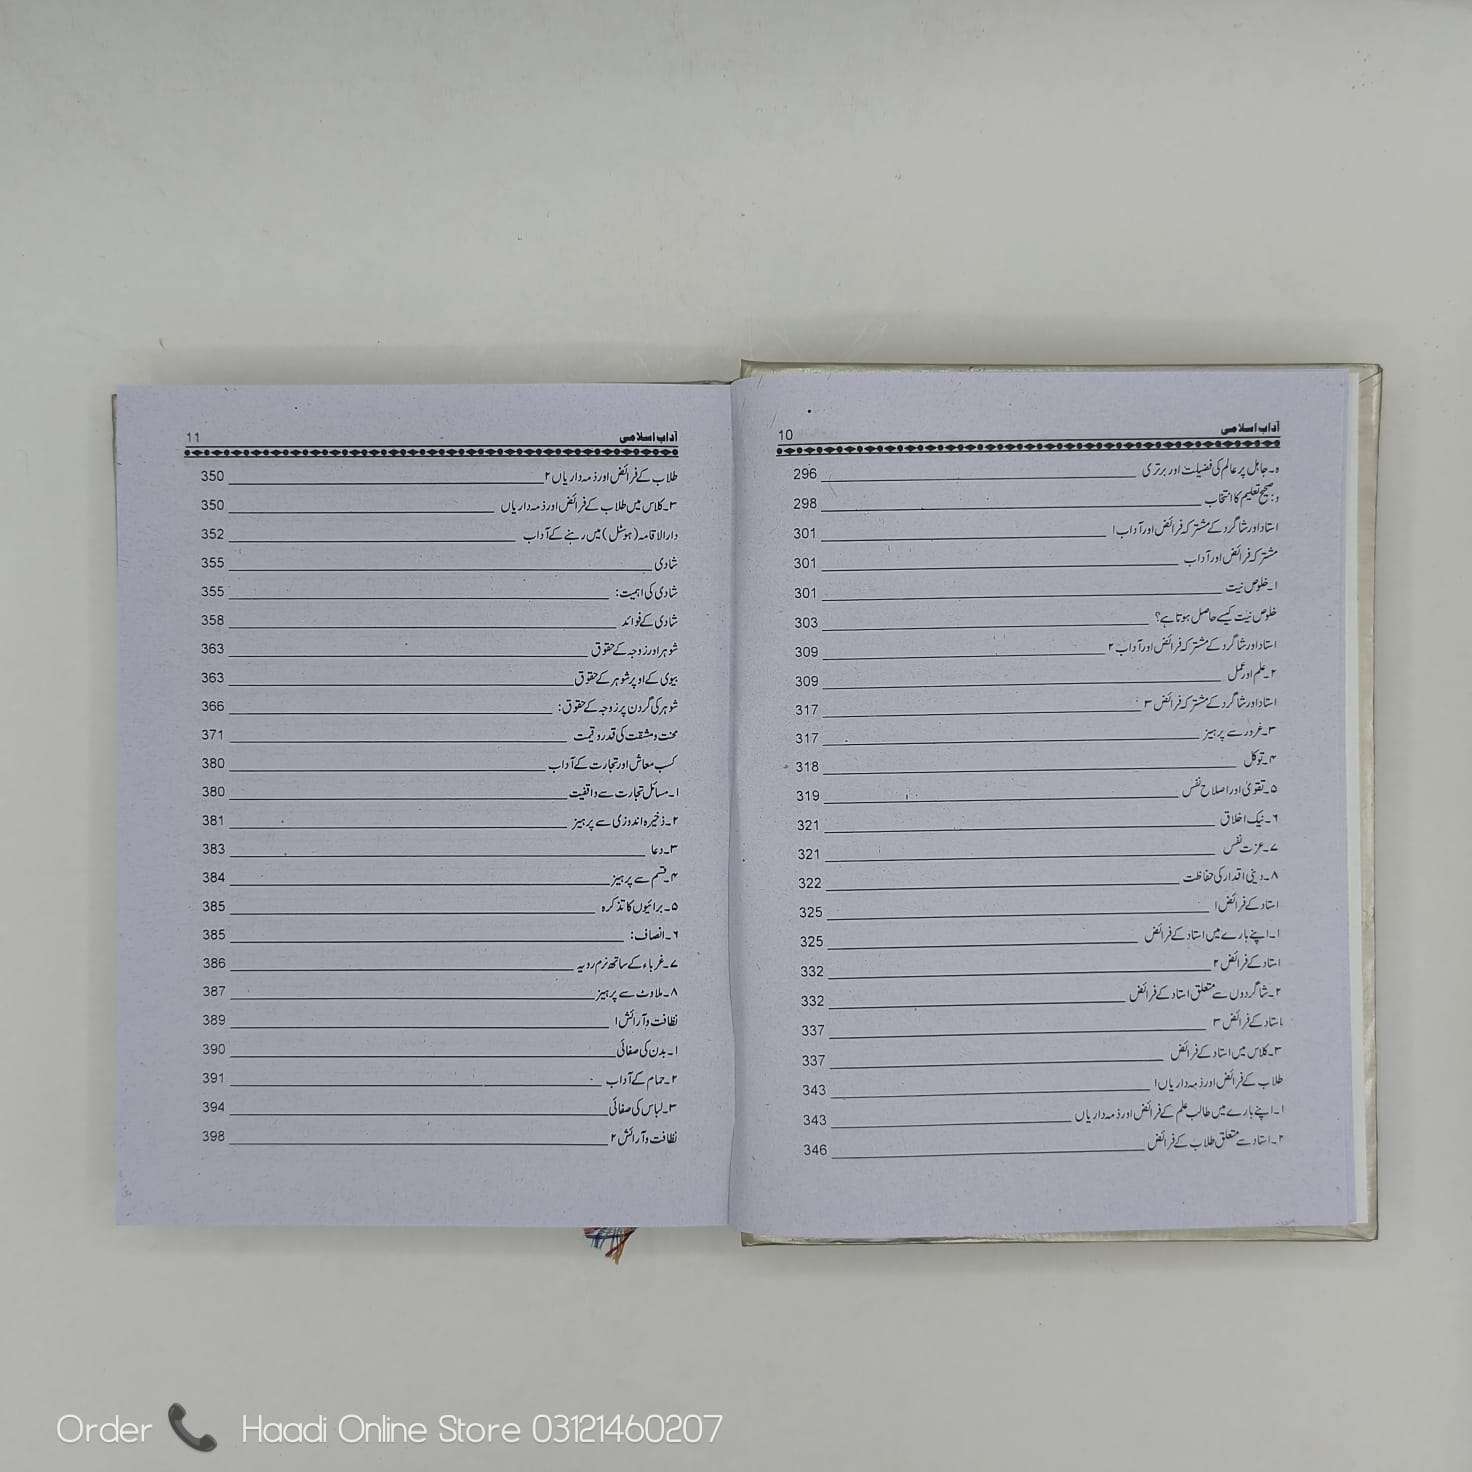 آداب اسلامی 10
ہ۔جاہل پر عالم کی فضیلت اور برتری 296
و: صحیح تعلیم کا انتخاب 298
استاد اور شاگرد کے مشترکہ فرائض اور آداب ۱ 301
مشترکہ فرائض اور آداب 301
۱۔خلوص نیت 301
خلوص نیت کیسے حاصل ہوتا ہے؟ 303
استاد اور شاگرد کے مشترکہ فرائض اور آداب ۲ 309
۲۔علم اور عمل 309
استاد اور شاگرد کے مشترکہ فرائض ۳ 317
۳۔غرور سے پرہیز 317
۴۔توکل 318
۵۔تقویٰ اور اصلاح نفس 319
۶۔نیک اخلاق 321
۷۔عزت نفس 321
۸۔دینی اقدار کی حفاظت 322
استاد کے فرائض ۱ 325
۱۔اپنے بارے میں استاد کے فرائض 325
استاد کے فرائض ۲ 332
۲۔شاگردوں سے متعلق استاد کے فرائض 332
استاد کے فرائض ۳ 337
۳۔کلاس میں استاد کے فرائض 337
طلاب کے فرائض اور ذمہ داریاں ۱ 343
۱۔اپنے بارے میں طالب علم کے فرائض اور ذمہ داریاں 343
۲۔استاد سے متعلق طلاب کے فرائض 346
آداب اسلامی 11
طلاب کے فرائض اور ذمہ داریاں ۲ 350
۳۔کلاس میں طلاب کے فرائض اور ذمہ داریاں 350
دارالاقامہ (ہوسٹل) میں رہنے کے آداب 352
شادی 355
شادی کی اہمیت: 355
شادی کے فوائد 358
شوہر اور زوجہ کے حقوق 363
بیوی کے اوپر شوہر کے حقوق 363
شوہر کی گردن پر زوجہ کے حقوق: 366
محنت و مشقت کی قدر و قیمت 371
کسب معاش اور تجارت کے آداب 380
۱۔مسائل تجارت سے واقفیت 380
۲۔ذخیرہ اندوزی سے پرہیز 381
۳۔دعا 383
۴۔قسم سے پرہیز 384
۵۔برائیوں کا تذکرہ 385
۶۔انصاف: 385
۷۔غرباء کے ساتھ نرم رویہ 386
۸۔ملاوٹ سے پرہیز 387
نظافت و آرائش ۱ 389
۱۔بدن کی صفائی 390
۲۔حمام کے آداب 391
۳۔لباس کی صفائی 394
نظافت و آرائش ۲ 398
Order Haadi Online Store 03121460207